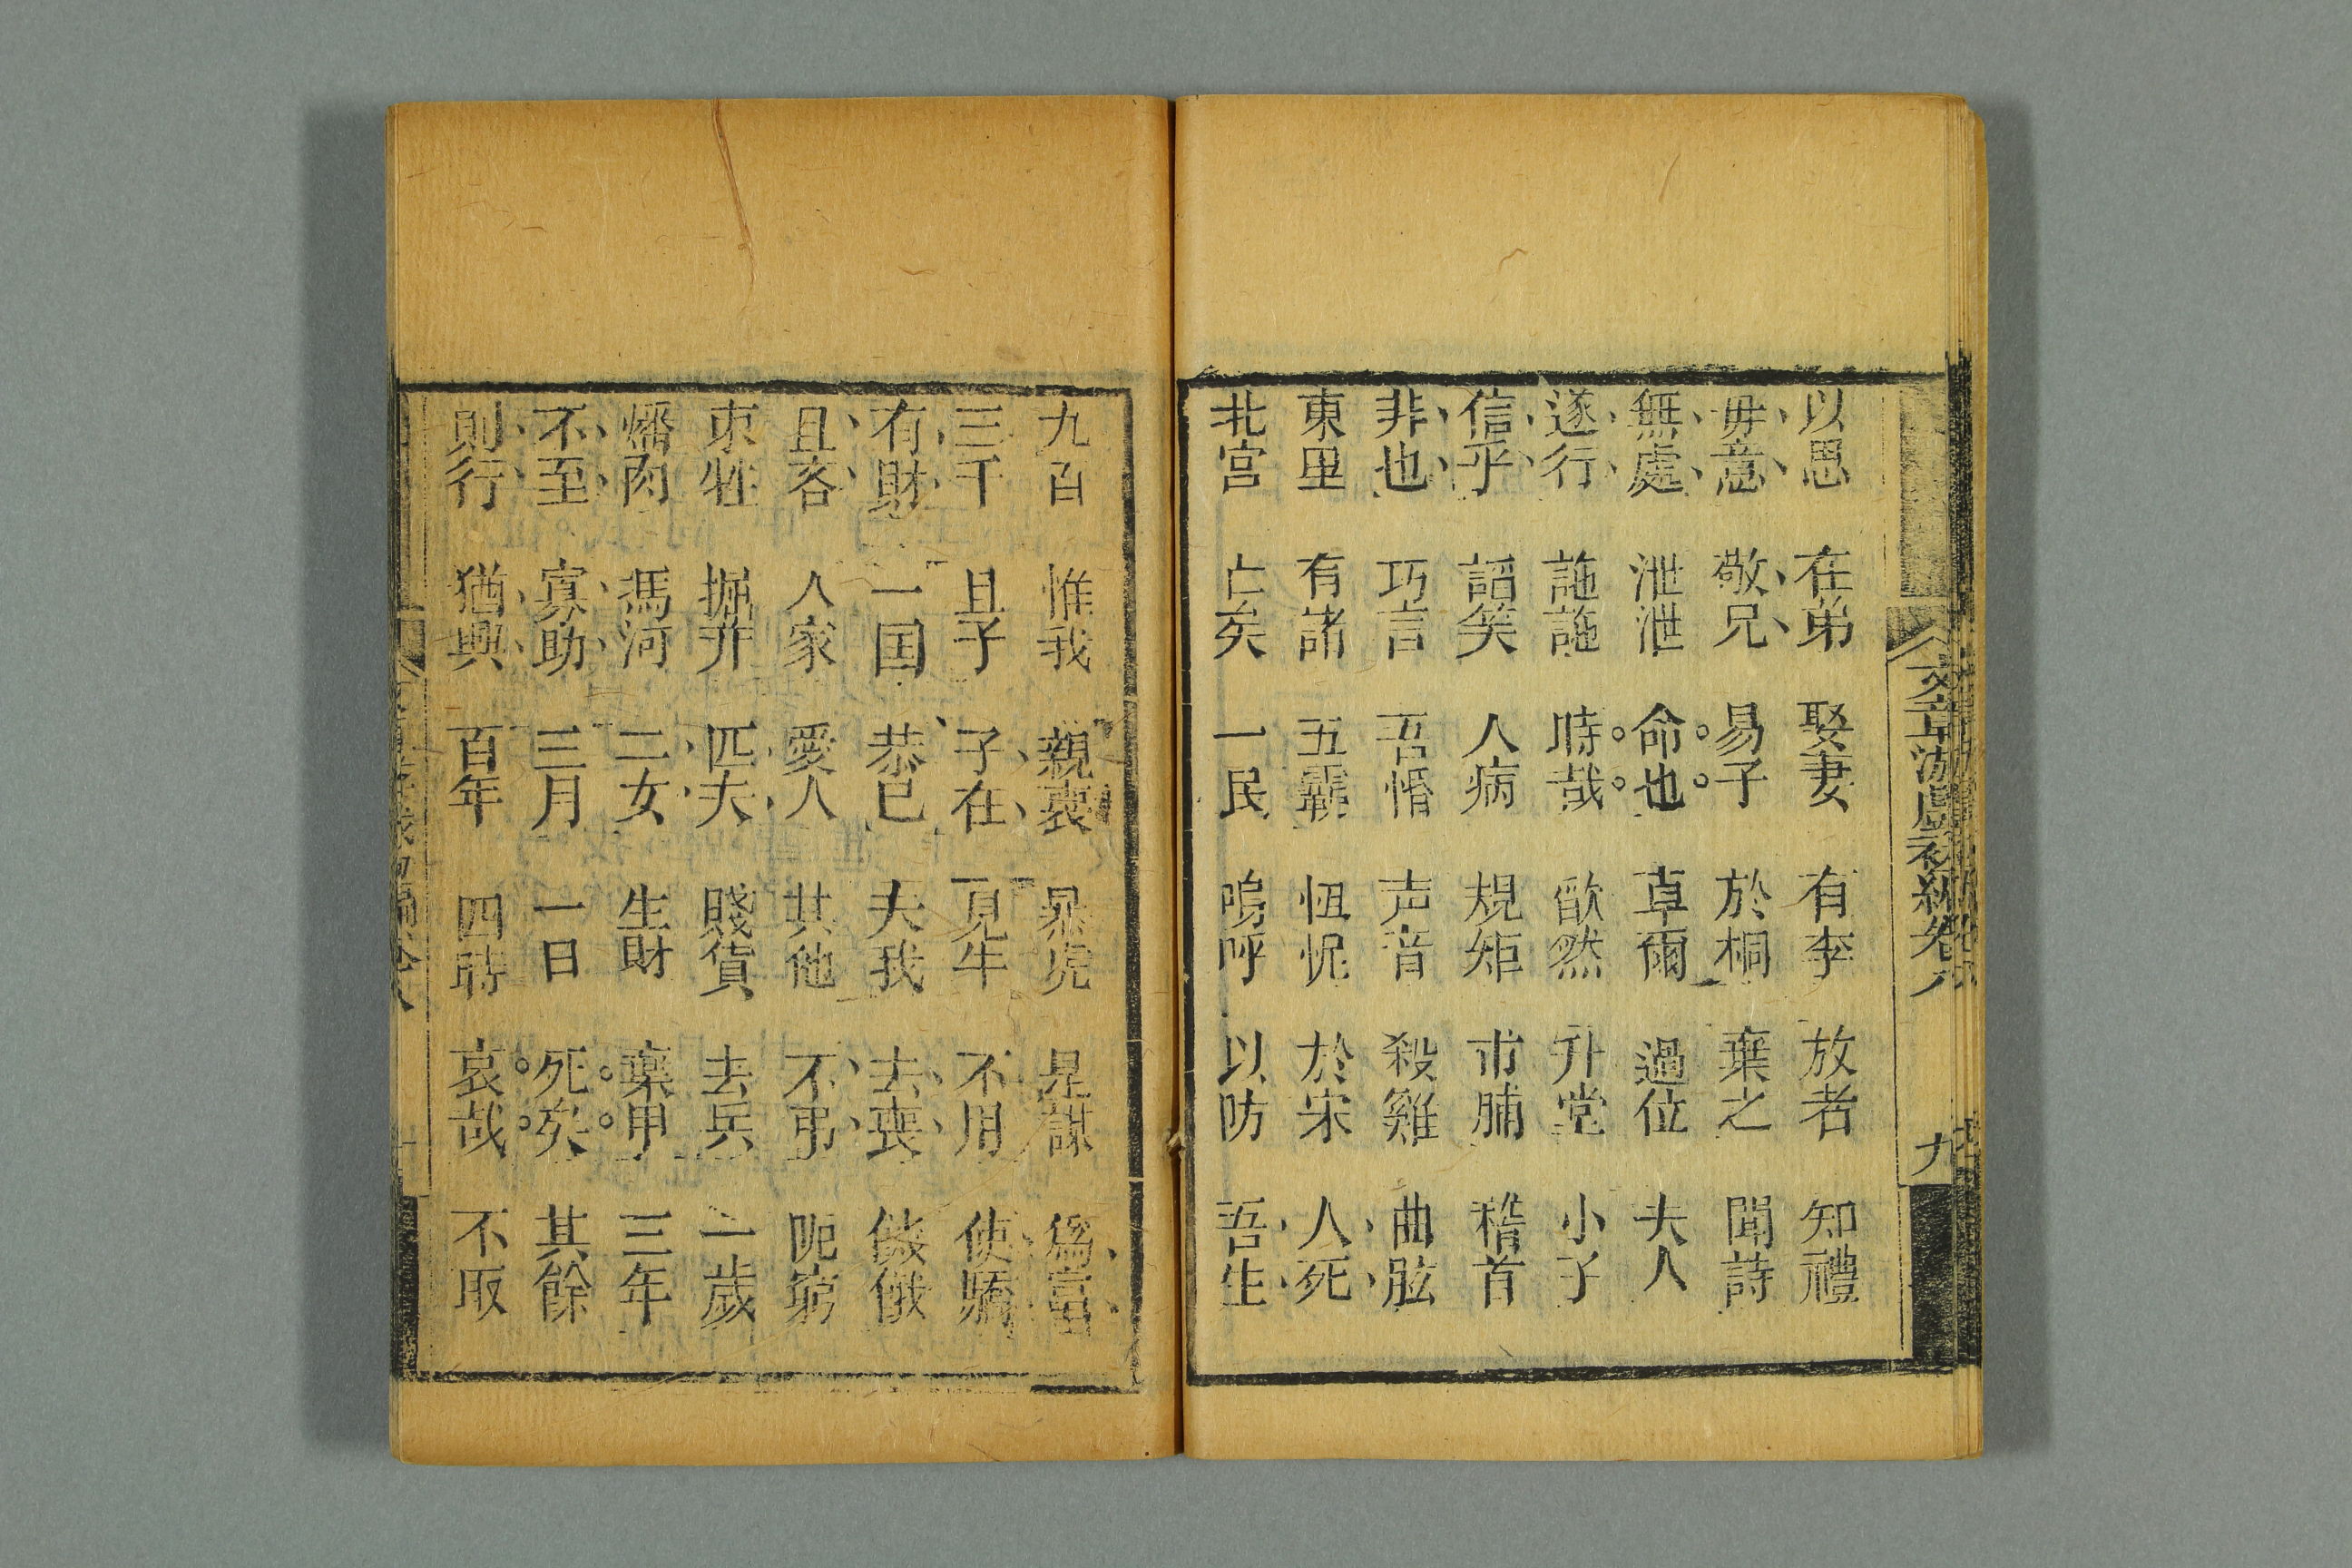 以思 在弟 娶妻 有李 放者 知禮
毋意 敬兄 易子 於桐 棄之 聞詩
無處 泄泄 命也 卓爾 過位 夫人
遂行 訑訑 時哉 歃然 升堂 小子
信乎 謟笑 人病 規矩 市脯 稽首
非也 巧言 吾惛 声音 殺雞 曲肱
東里 有諸 五霸 忸怩 於宋 人死
北宮 亡矣 一民 嗚呼 以防 吾生
九百 惟我 親喪 暴虎 是謀 為富
三千 且子 子在 見牛 不用 使驕
有財 一国 恭已 夫我 去喪
且吝 人家 愛人 其他 不弔 阨窮
朿牲 掘井 匹夫 賤貨 去兵 一歲
燔肉 馮河 二女 生財 棄甲 三年
不至 寡助 三月 一日 死矣 其餘
則行 猶興 百年 四時 哀哉 不取
九